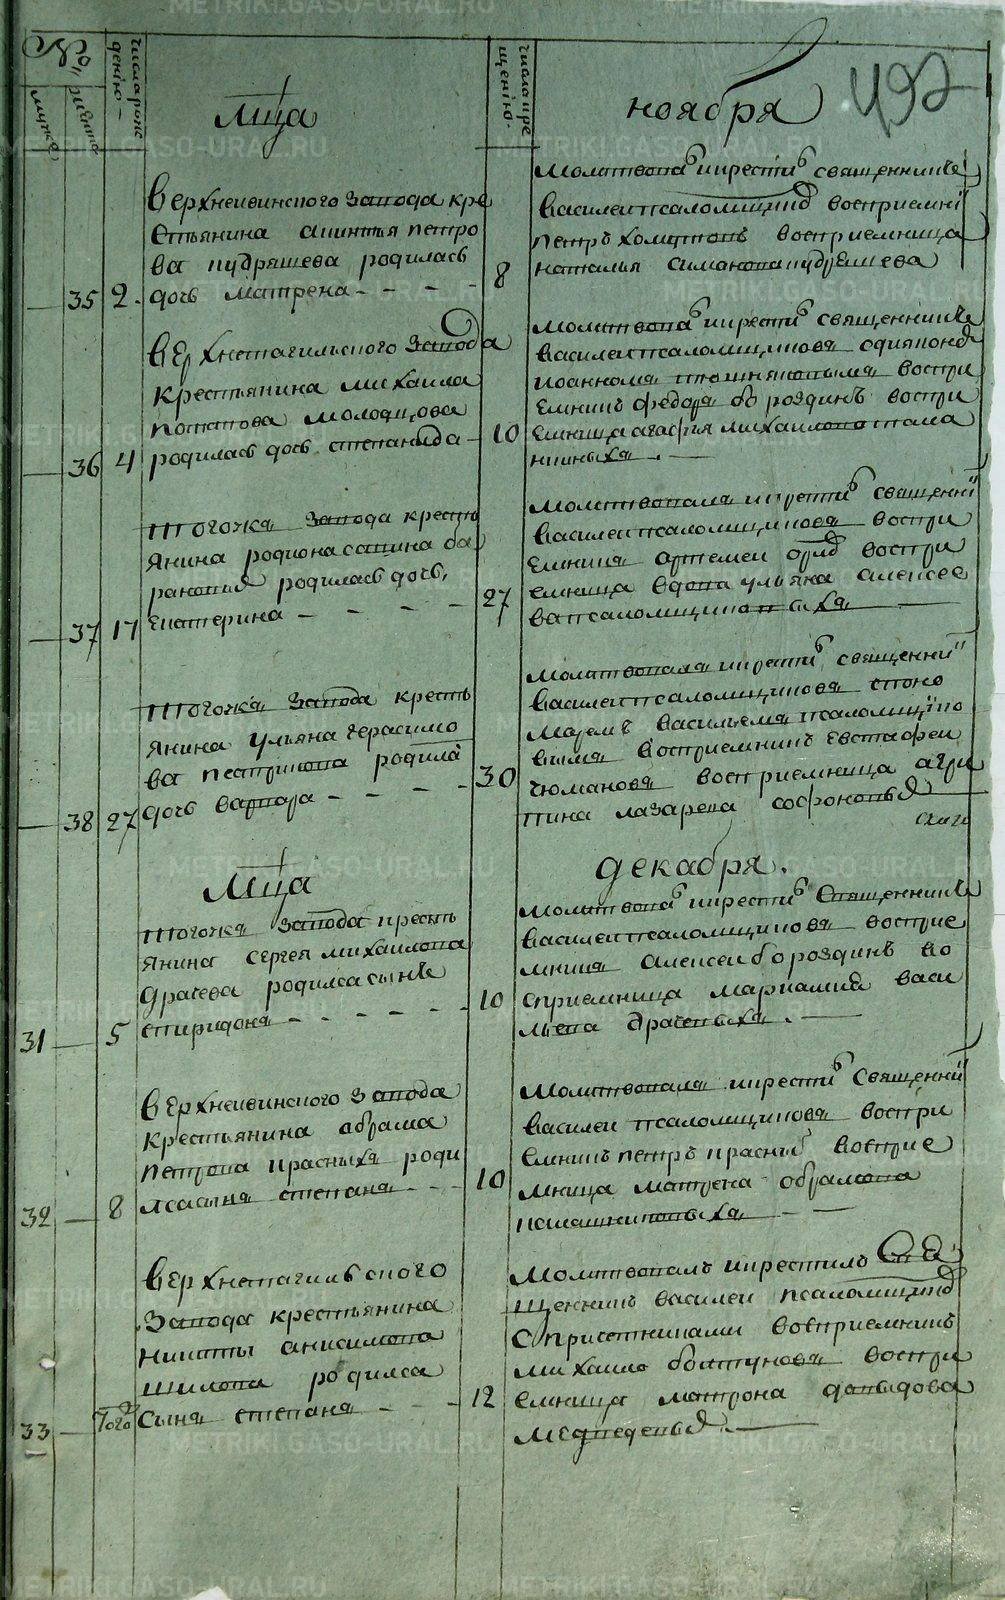 мца
ноября
492
Верхнеивинского завода кре
стьянина
петро
ва кудряшева родилась
35 2. дочь матрена
8
молитвовалъ и крестилъ священникъ
василеи псаломщиков восприемни
петръ восприемница
наталья симанова кудряшева
Верхнетагильского завода
крестьянина михаила
потапова молодцова
36 4 родилась дочь степанида
10
молитвовалъ и крестилъ священникъ
василеи псаломщиковъ с дияконом
иоанномъ воспри
емникъ федоръ бороздинъ воспри
емница агафия михаилова
того жъ завода кресть
янина родиона савина ба
рановыхъ родилась дочь
37 17 екатерина
27
молитвовалъ и крестилъ священни
василеи псаломщиковъ воспри
емникъ артемеи воспри
емница вдова ульяна алексее
ва псаломщиковыхъ
того жъ завода кресть
янина ульяна герасимо
ва пестрикова родила
38 27 дочь варвара
30
молитвовалъ и крестилъ священни
василеи псаломщиковъ с поно
маремъ васильемъ псаломщико
вымъ восприемникъ евстафеи
чюмановъ восприемница агри
пина лазарева софоновых
мца
декабря.
того жъ завода кресть
янина сергея михаилова
драчева родилса сынъ
31 5 спиридонъ
10
молитвовалъ и крестилъ священникъ
василеи псаломщиковъ восприе
мникъ алексеи бороздинъ во
сприемница мариамия васи
льева драчевыхъ.
Верхнеивинского завода
крестьянина абрама
петрова красныхъ роди
32 8 лса сынъ степанъ
10
молитвовалъ и крестилъ священни
василеи псаломщиковъ воспри
емникъ петръ красных восприе
мница матрена абрамова
калашниковыхъ
Верхнетагильского
завода крестьянина
никиты анисимова
шилова родилса
33 того сынъ степанъ
12
молитвовалъ и крестилъ свя
щенникъ василеи псаломщиков
с причетниками восприемникъ
михаило болтуновъ воспри
емница матрона давыдова
медведевых.
METRIKI.GASO-URAL.RU